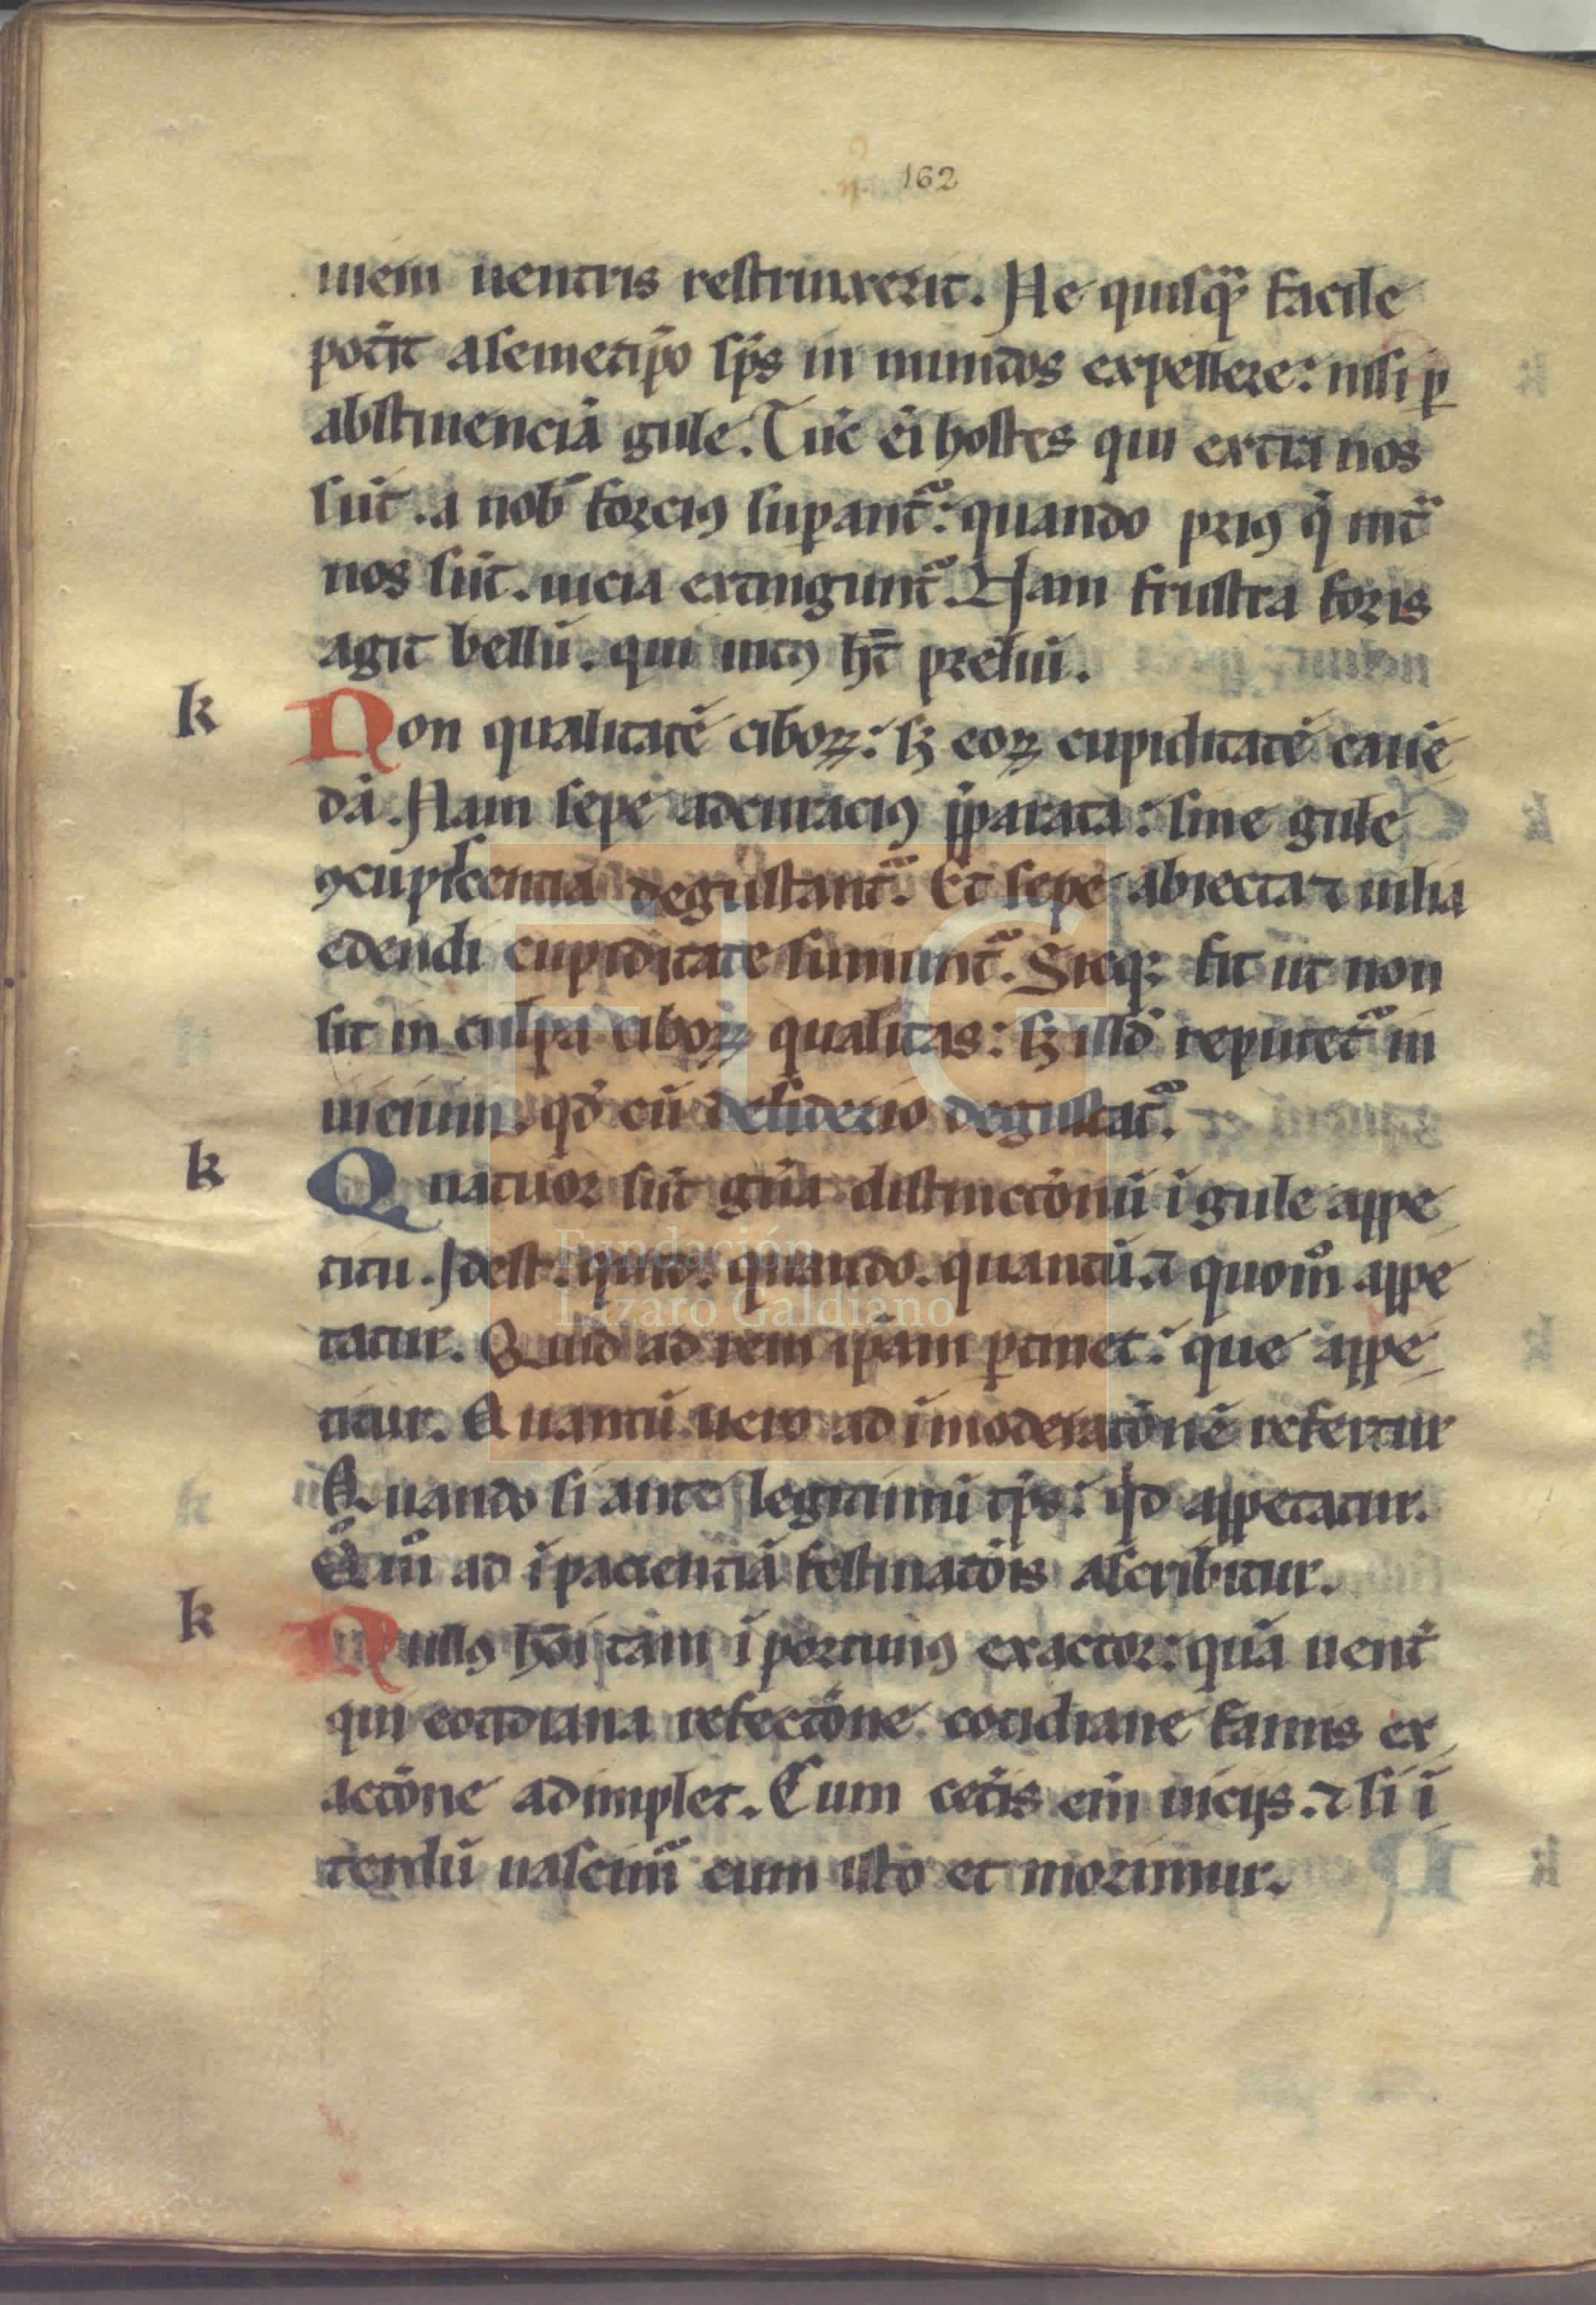 162
uiem uentris restrinxerit. Ne quisqᷓ facile
pot̾it asemetip̄o sp̄s in mundos expellere: nisi ꝑ
abstinenciā gule. Tūc ei̅ hostes qui extra nos
sūt. a nob̄ forciꝰ suꝑantᷣ: quando priꝰ q̇ intᷓ
nos sūt. uicia extingguntᷣ. Nam frustra foris
agit bellū. qui intꝰ h̄t preliū.
k Non qualitatē ciboꝝ: sꝫ eoꝝ cupiditatē cauē
dā. Nam sepe adcuraciꝰ p̄parata: sine gule
ꝯcupiscentia degustantᷣ. Et sepe abiecta ⁊ uilia
edendi cupiditate sumuntᷣ. Sicqꝫ fit ut non
sit in culpa ciboꝝ qualitas: sꝫ illd̄ reputetᷣ in
uicium. qd̄ cū desiderio degustatᷣ.
k Quatuor sūt gn̄a distinctōnū ī gule appe
titu. Idest. quid. quando. quantū. ⁊ quom̊ appe
tatur. Quid ad rem ip̄am ꝑtinet: que appe
titur. Quantū uero ad īmoderatōnē refertur
Quando si ante legitimū tp̄s: qd̄ appetatur.
Q̊m̊ ad īpacientiā festinatōis ascribitur.
k Nullꝰ hōi tam īportunꝰ exactor: quā uent̾
qui cotidiana refectōne cotidiane famis ex
actōne adimplet. Cum cet̾is eni̅ uicijs. ⁊ si ī
terdū nascimᷣ cum isto et morimur.
Fundación
Lázaro Galdiano